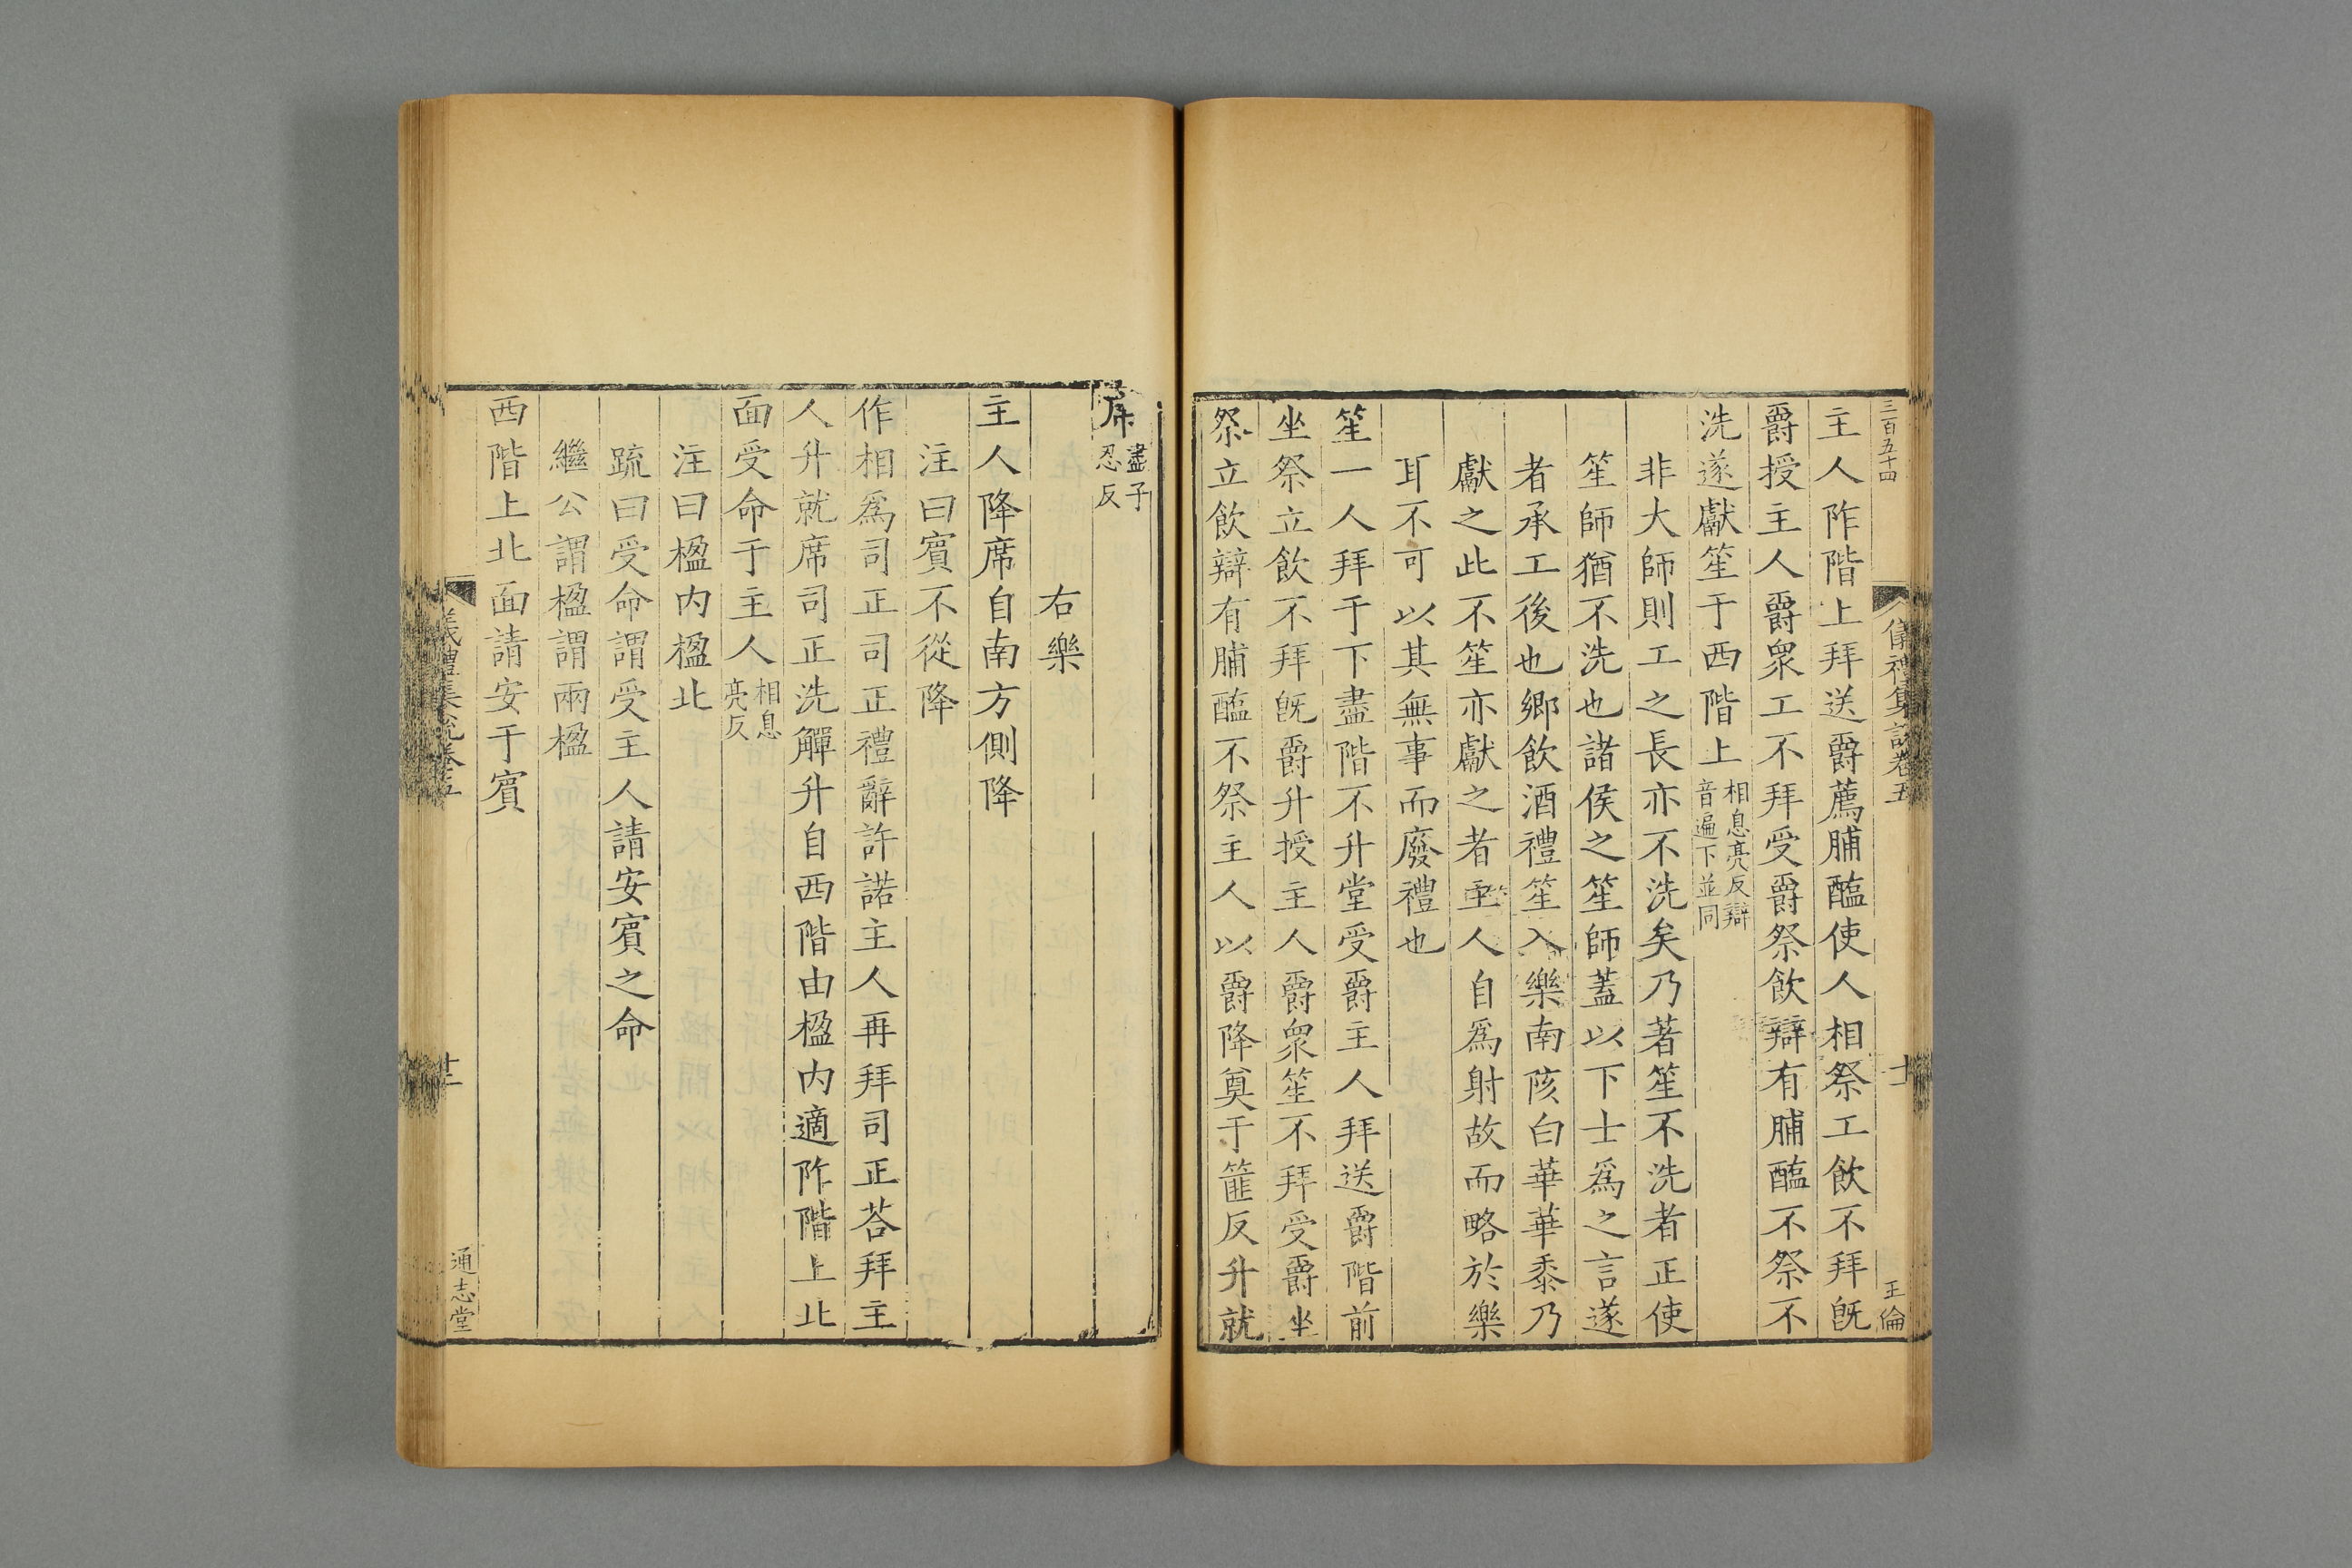 三百五十四
儀禮集說卷五
十一
王倫
主人阼階上拜送爵薦脯醢使人相祭工飲不拜既
爵授主人爵眾工不拜受爵祭飲辯有脯醢不祭不
洗遂獻笙于西階上相息亮反辯音遍下並同
非大師則工之長亦不洗矣乃著笙不洗者正使
笙師猶不洗也諸侯之笙師蓋以下士爲之言遂
者承工後也鄉飲酒禮笙入樂南陔白華華黍乃
獻之此不笙亦獻之者主人自爲射故而略於樂
耳不可以其無事而廢禮也
笙一人拜于下盡階不升堂受爵主人拜送爵階前
坐祭立飲不拜既爵升授主人爵眾笙不拜受爵坐
祭立飲辯有脯醢不祭主人以爵降奠于篚反升就
席盡子忍反
右樂
主人降席自南方側降
注曰賓不從降
作相爲司正司正禮辭許諾主人再拜司正荅拜主
人升就席司正洗觶升自西階由楹内適阼階上北
面受命于主人相息亮反
注曰楹内楹北
疏曰受命謂受主人請安賓之命
繼公謂楹謂兩楹
西階上北面請安于賓
儀禮集說卷五
十二
通志堂